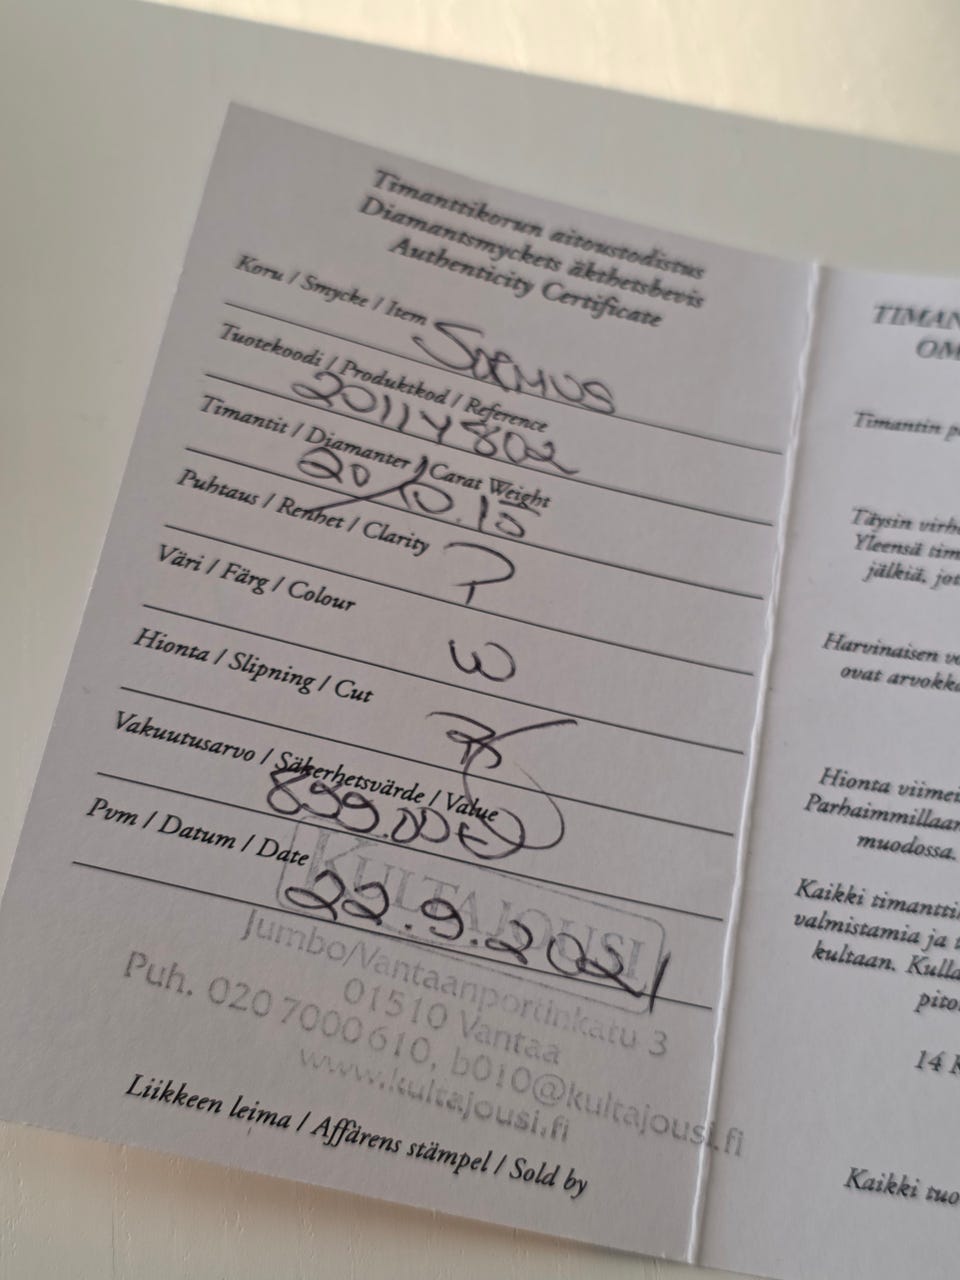 Timanttikorun aitoustodistus
Diamantsmyckets äkthetsbevis
Authenticity Certificate
Koru / Smycke / Item SORMUS
Tuotekoodi / Produktkod / Reference
20114802
Timantit / Diamanter / Carat Weight
20 / 0.15
Puhtaus / Renhet / Clarity P
Väri / Färg / Colour W
Hionta / Slipning / Cut
Vakuutusarvo / Säkerhetsvärde / Value
899.00 €
Pvm / Datum / Date
22.9.2021
KULTAJOUSI
Jumbo/Vantaanportinkatu 3
01510 Vantaa
Puh. 020 7000 610, b010@kultajousi.fi
www.kultajousi.fi
Liikkeen leima / Affärens stämpel / Sold by
TIMAN
OM
Timantin p
Täysin virh
Yleensä tim
jälkiä, jot
Harvinaisen v
ovat arvokk
Hionta viimei
Parhaimmillaan
muodossa.
Kaikki timantti
valmistamia ja t
kultaan. Kulla
pito
14 K
Kaikki tuo